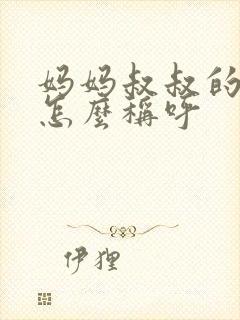 妈妈叔叔的
怎麼稱呼
伊狸